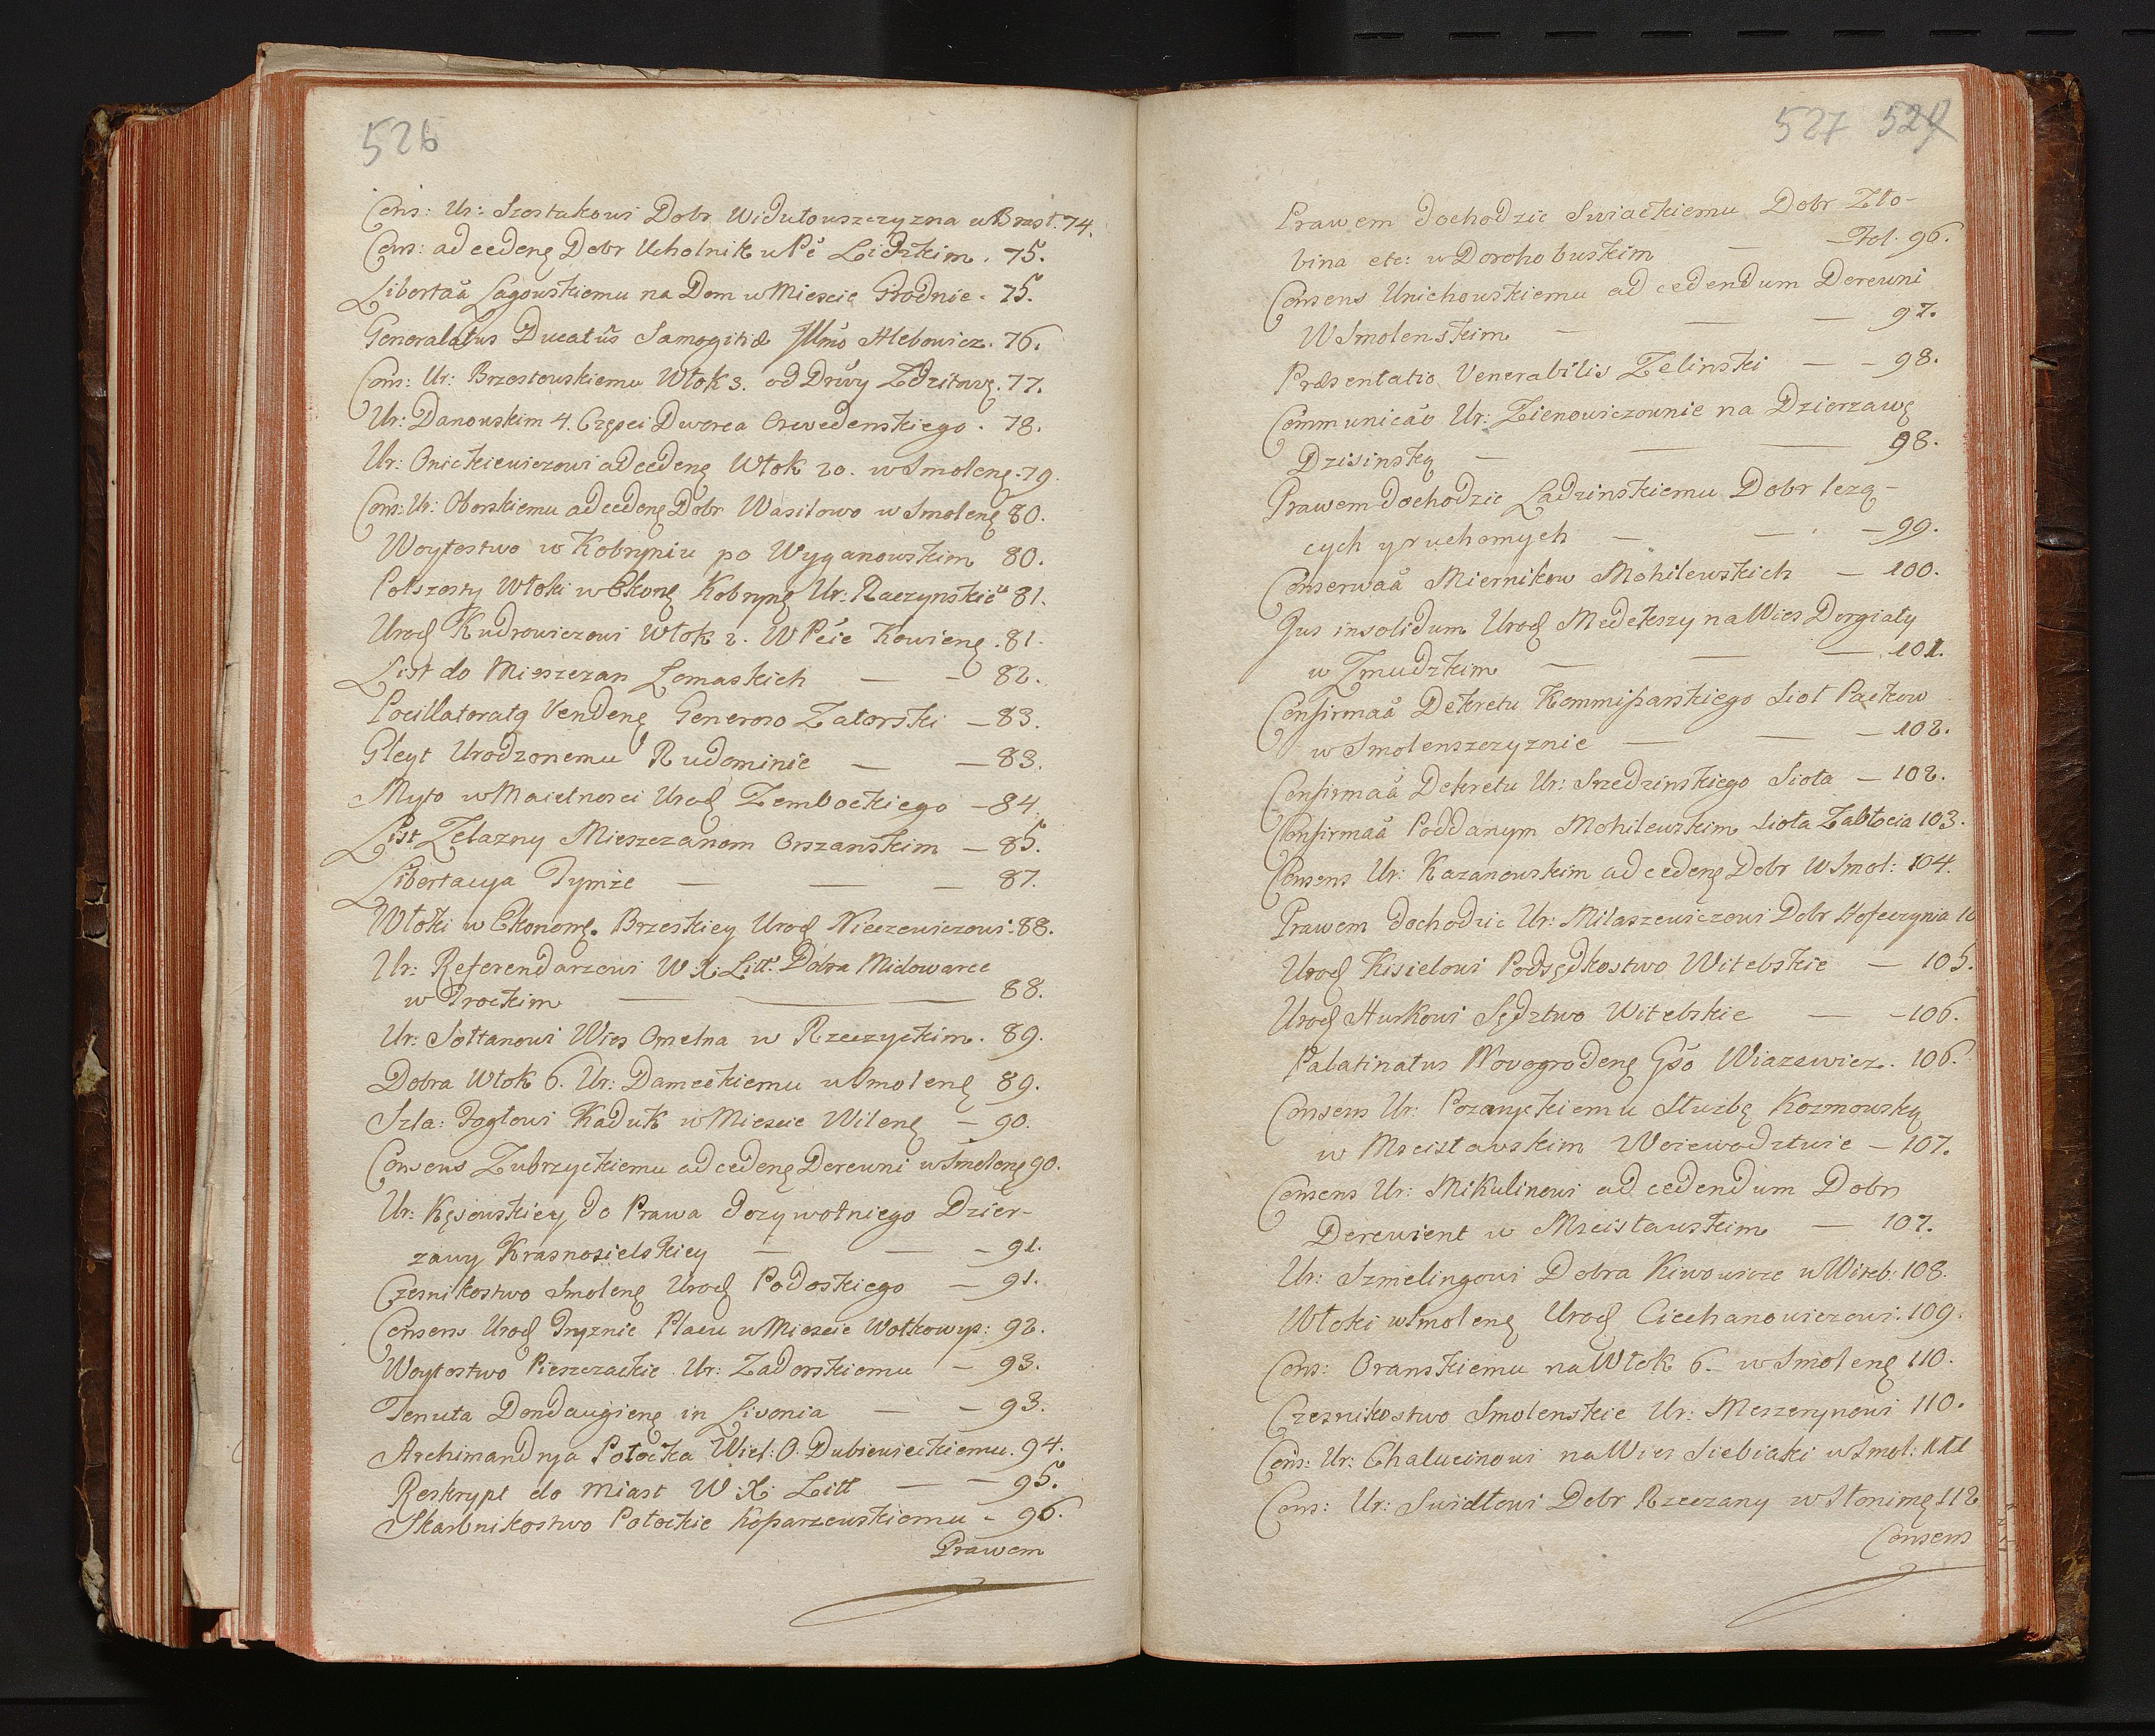 526
Cons: Ur: Szostakowi Dobr Widutowszczyzna w Brest. 74.
Cons: ad cedenę Dobr Ucholnik w Pć Lidzkim. 75.
Libertaã Lagowskiemu na Dom w Miescie Grodnie. 75.
Generalatus Ducatûs Samogitiæ Illmo Hlebowicz. 76.
Cons: Ur: Brzestowskiemu Włok 3. od Drwy Zdzitowę. 77.
Ur: Danowskim 4. Częsci Dworca Ozwedenskiego. 78.
Ur: Onickiewiczowi ad cedenę Włok 20. w Smolenę. 79.
Cons: Ur: Oborskiemu ad cedenę Dobr Wasilowo w Smolenę 80.
Woytostwo w Kobryniu po Wyganowskim 80.
Połszosty Włoki w Ekonę Kobrynę Ur: Raczynskie 81.
Urodz Kudrowiczowi Włok 2. W Pćie Kowienę. 81.
List do Mieszczan Lomaskich — — 82.
Pocillatoratq Vendenę Generoso Zatorski — 83.
Gleyt Urodzonemu Rudominie — — 83.
Myto w Maietnosci Urodz Zembockiego — 84.
List Zelazny Mieszczanom Orszanskim — 85.
Libertacya Tymże — — — 87.
Włoki w Ekonomę. Brzeskiey Urodz Nieczewiczowi. 88.
Ur: Referendarzowi W. X. Litt. Dobra Midowarce
w Trockim — — 88.
Ur: Sołtanowi Wies Omelna w Rzeczyckim. 89.
Dobra Włok 6. Ur: Dameckiemu w Smolenę 89.
Szla: Fogtowi Kaduk w Miescie Wilenę — 90.
Consens Zubrzyckiemu ad cedenę Derewni w Smolenę 90.
Ur: Kęsowskiey do Prawa dozywotniego Dzier-
zawy Krasnosielskiey — — — 91.
Czesnikostwo Smolenę Urodz Podoskiego — 91.
Consens Urodz Tryznie Placu w Miescie Wołkowys: 92.
Woytostwo Pieszczackie Ur: Zadorskiemu — 93.
Tenuta Dondaugienę in Livonia — — 93.
Archimandrya Połocka Wiel: O. Dubienieckiemu. 94.
Reskrypt do Miast W. X. Litt — — 95.
Skarbnikostwo Połockie Koparzewskiemu — 96.
Prawem
527 529
Prawem dochodzic Swiackiemu Dobr Zło-
bina etc: w Dorohobuskim — — Fol. 96.
Consens Unichowskiemu ad cedendum Derewni
W Smolenskim — — — 97.
Præsentatio Venerabilis Zelinski — — 98.
Communicão Ur: Zienowiczownie na Dzierzawę
Dzisinską — — — 98.
Prawem dochodzic Ladzinskiemu Dobr lezą-
cych y ruchomych — — — 99.
Conserwaã Miernikow Mohilewskich — 100.
Jus insolidum Urodz Medekszy na Wies Dorgiały
w Zmudzkim — — — 101.
Confirmaã Dekretu Kommissarskiego Siot Packow
w Smolenszczyznie — — — 102.
Confirmaã Dekretu Ur: Srzedzinskiego Siota — 102.
Confirmaã Poddanym Mohilewskim siota Zabłocia 103.
Consens Ur: Kazanowskim ad cedenę Dobr W Smol: 104.
Prawem dochodzic Ur: Milaszewiczowi Dobr Hofeczynia 10
Urodz Kisielowi Podsędkostwo Witebskie — 105.
Urodz Hurkowi Sędztwo Witebskie — — 106.
Palatinatus Novogrodenę Gso Wiazewicz. 106.
Consens Ur: Pozanyckiemu Służbę Kozmowską
w Mscisławskim Woiewodztwie — 107.
Consens Ur: Mikulinowi ad cedendum Dobr
Derewient w Mscisławskim — 107.
Ur: Szmelingowi Dobra Kiwowicze w Witeb: 108.
Włoki w Smolenę Urodz Ciechanowiczowi. 109.
Cons: Oranskiemu na Włok 6. w Smolenę 110.
Czesnikostwo Smolenskie Ur: Meszerynowi 110.
Cons: Ur: Chalucinowi na Wies Siebiaki w Smol: 111
Cons: Ur: Swidłowi Dobr Rzeczany w Słonimę 112
Consens